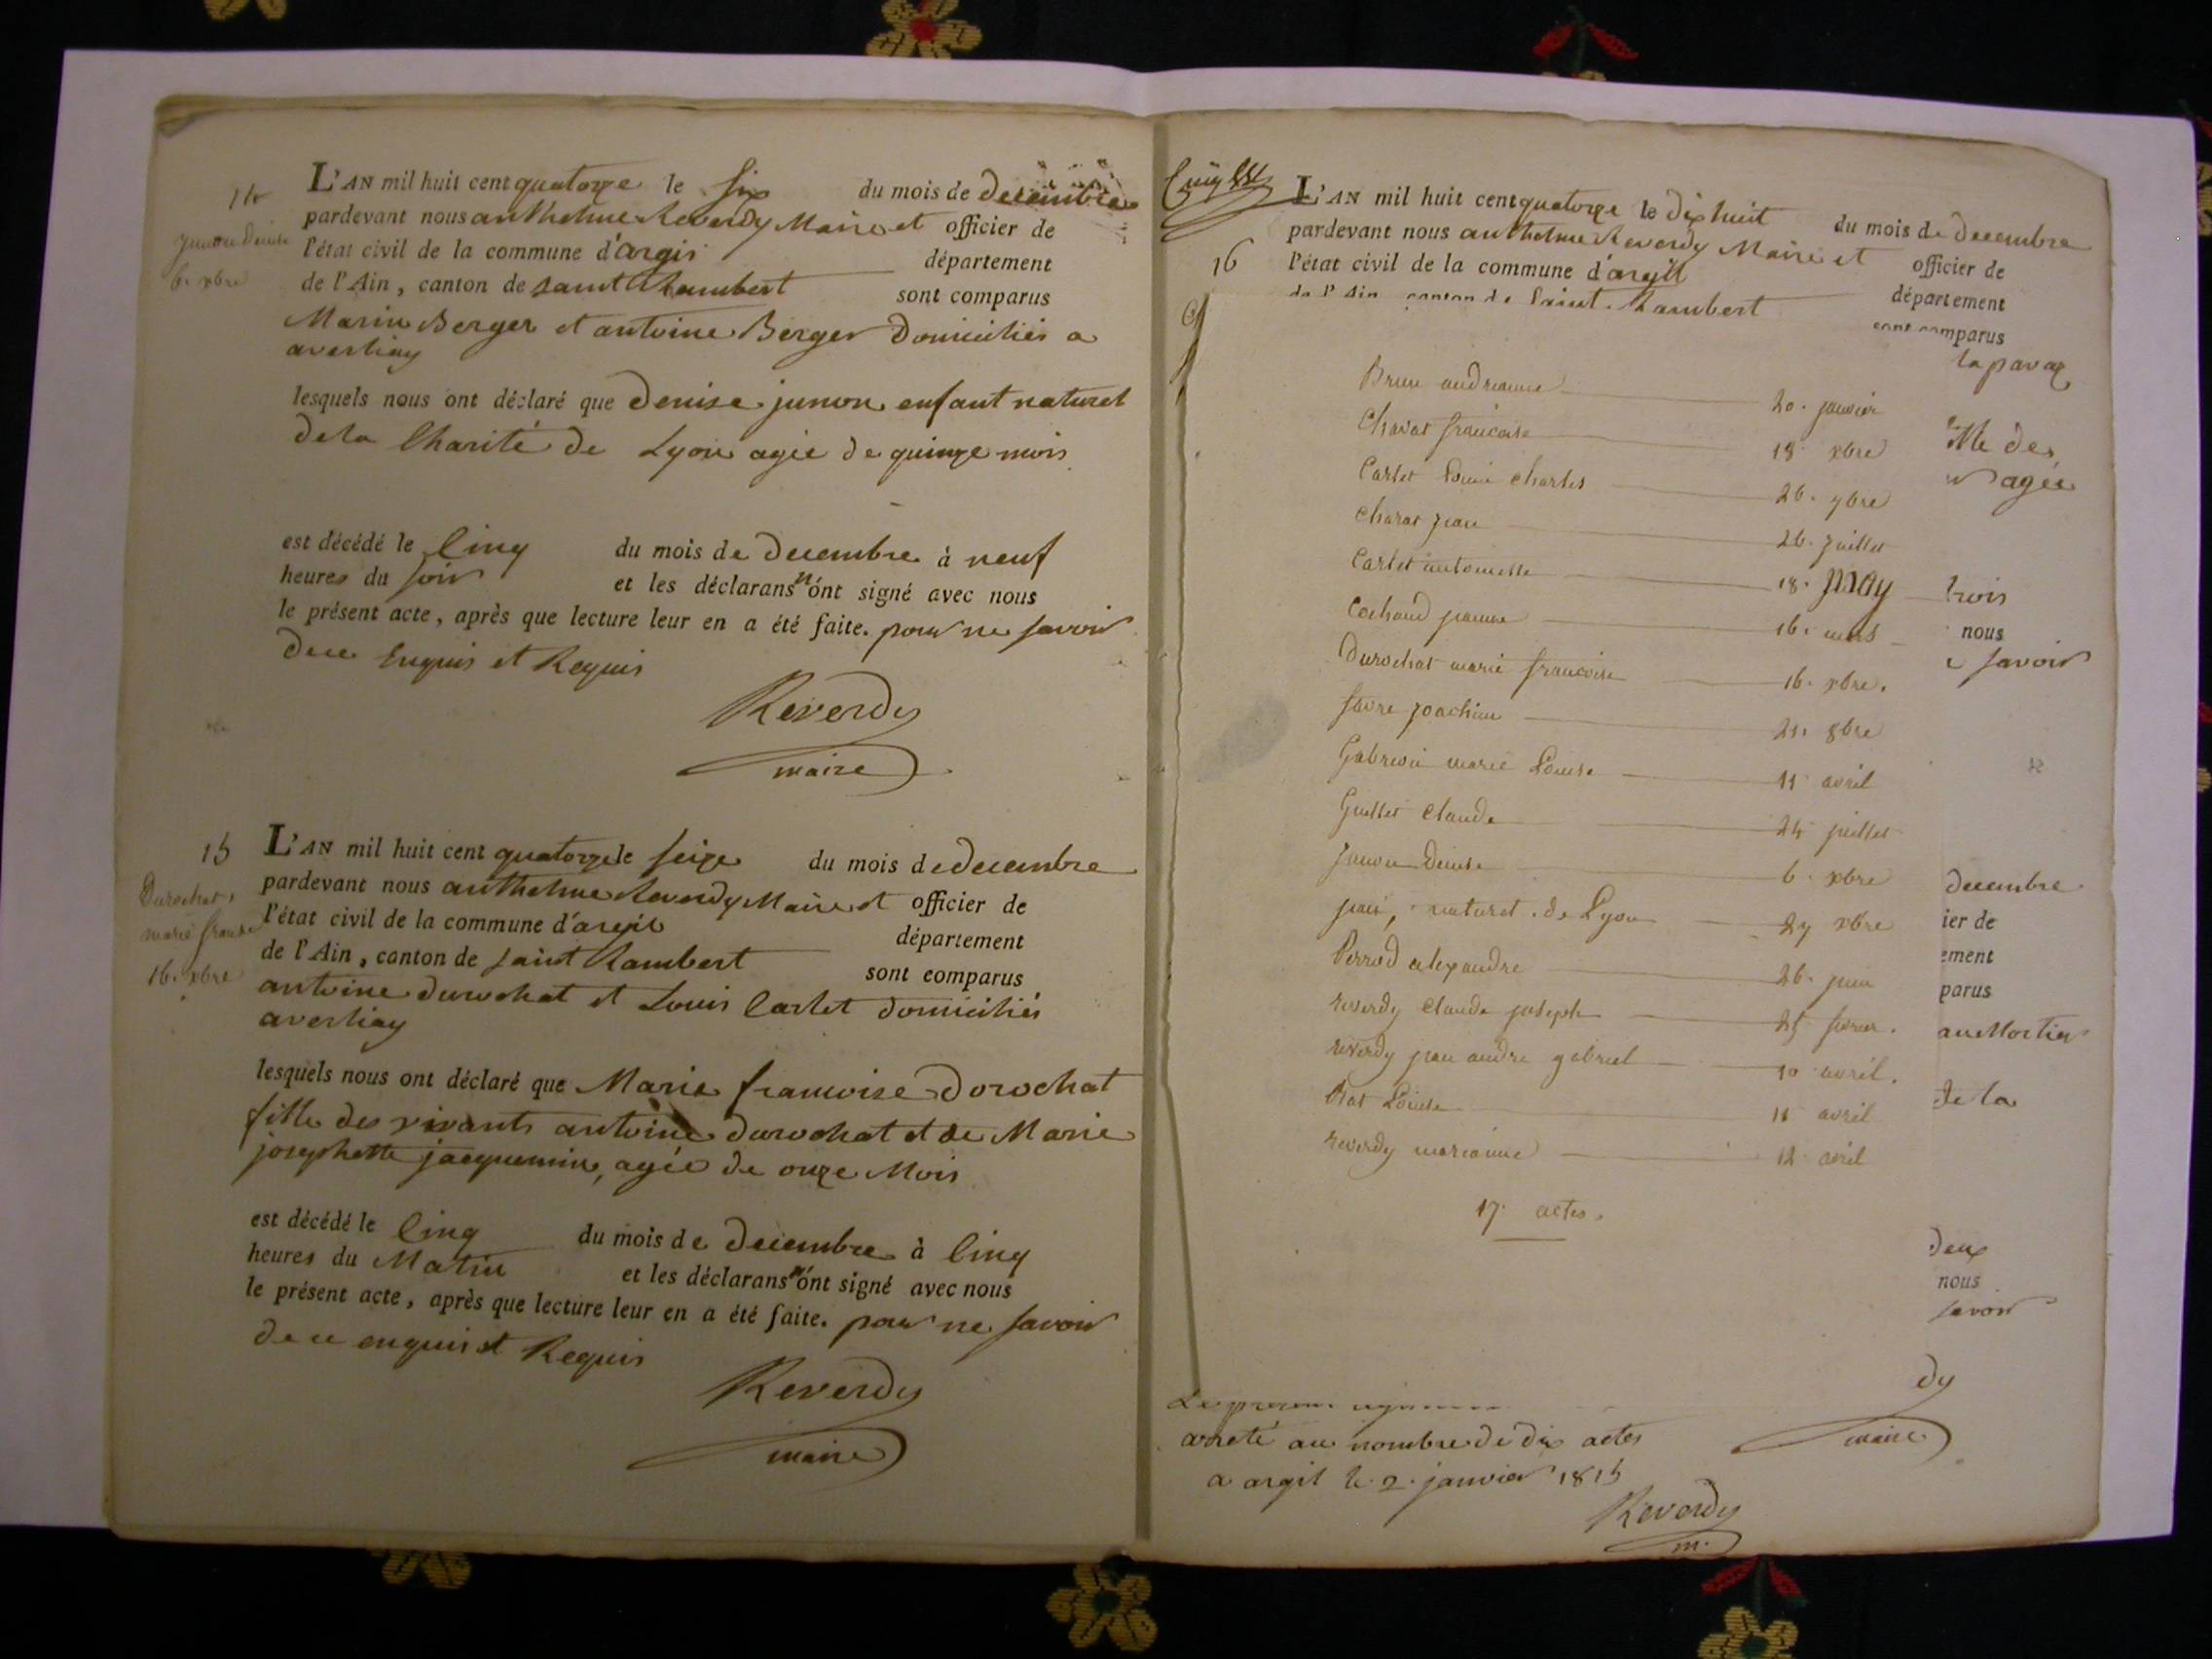 14
L'AN mil huit cent quatorze le six du mois de decembre
pardevant nous anthelme Reverdy Maire et officier de
junon Denise
l'état civil de la commune d'argis département
6. xbre
de l'Ain, canton de saint Rambert sont comparus
Marin Berger et antoine Berger Domiciliés a
averliay
lesquels nous ont déclaré que Denise junon enfant naturel
de la Charité de Lyon agée de quinze mois
est décédé le Cinq du mois de decembre à neuf
heures du soir et les déclarans n'ont signé avec nous
le présent acte, après que lecture leur en a été faite. pour ne savoir
de ce Enquis et Requis
Reverdy
maire
15
L'AN mil huit cent quatorze le seize du mois de decembre
Durochat
pardevant nous anthelme Reverdy Maire et officier de
marie franse
l'état civil de la commune d'argil département
16. xbre
de l'Ain, canton de saint Rambert sont comparus
antoine durochat et Louis Cartet domiciliés
averliay
lesquels nous ont déclaré que Marie francoise Dorochat
fille des vivants antoine durochat et de Marie
josephette jacquemin, agée de onze Mois
est décédé le Cinq du mois de decembre à Cinq
heures du Matin et les déclarans n'ont signé avec nous
le présent acte, après que lecture leur en a été faite. pour ne savoir
de ce enquis et Requis
Reverdy
maire
L'AN mil huit cent quatorze le dix huit du mois de decembre
pardevant nous anthelme Reverdy Maire et officier de
16
l'état civil de la commune d'argil département
de l'Ain canton de Saint Rambert sont comparus
Brun andreanne 20. janvier
Chavat francoise 18 xbre
lle des
Cartet Louis charles 26. 9bre
agée
Charat jean 26. juillet
Cartet antoinette 18. may
trois
Cochaud jeanne 16. mars
nous
Durochat marie francoise 16. xbre.
savoir
favre joachim 21. 8bre
marie Louise 11 avril
Guillet claude 24 juillet
junon Denise 6. xbre
decembre
naturel de Lyon 27 xbre
ier de
Perrod alexandre 26. juin
ement
parus
reverdy Claude joseph 25 fevrier.
au Mortier
reverdy jean andre gabriel 10 avril.
de la
Rat Louise 11 avril
reverdy marianne 12 avril
17. actes.
deux
nous
savoir
dy
maire
arreté au nombre de dix actes
a argil le 2. janvier 1815
Reverdy
m.